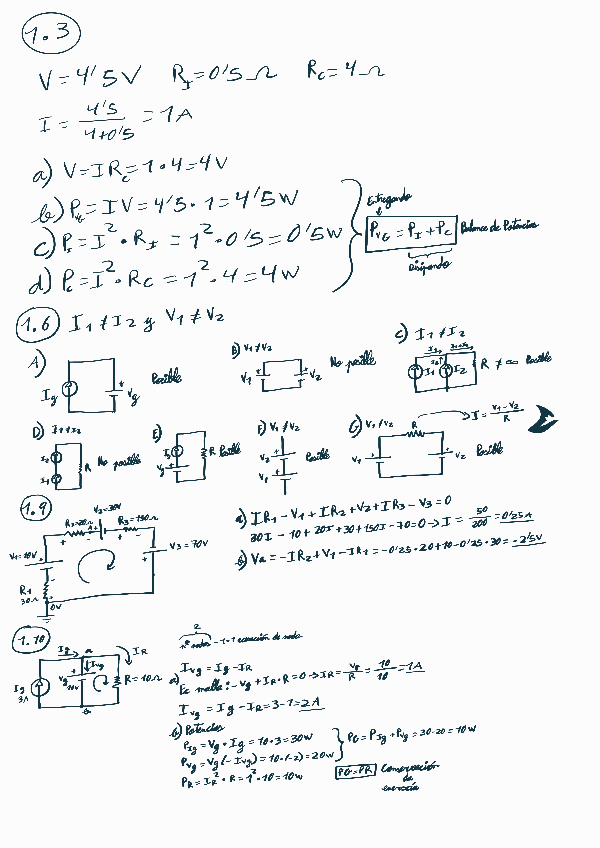 1.3
V = 4'5V   R_I = 0'5 Ω   R_C = 4 Ω
I = 4'5 / 4+0'5 = 1A
a) V = I R_C = 1 · 4 = 4V
b) P_Vg = I V = 4'5 · 1 = 4'5W
c) P_I = I² · R_I = 1² · 0'5 = 0'5W
d) P_C = I² · R_C = 1² · 4 = 4W
Entregando
P_VG = P_I + P_C   Balance de Potencias
Disipando
1.6   I1 ≠ I2 y V1 ≠ V2
A)   Ig   + Vg   Posible
B) V1 ≠ V2   V1   V2   No posible
C) I1 ≠ I2   I1   I2   R ≠ ∞   Posible
D) I1 ≠ I2   R   No posible
E)   R   Posible
F) V1 ≠ V2   V2   V1   Posible
G) V1 ≠ V2   R   V1   V2   Posible   → I = V1 - V2 / R
1.9
V2 = 30V
R2 = 20 Ω   R3 = 150 Ω
V1 = 10V   V3 = 70V
R1
30 Ω
0V
a) IR1 - V1 + IR2 + V2 + IR3 - V3 = 0
30I - 10 + 20I + 30 + 150I - 70 = 0 → I = 50 / 200 = 0'25A
b) Va = -IR2 + V1 - IR1 = -0'25 · 20 + 10 - 0'25 · 30 = -2'5V
1.10
Ig   a   I_R
Ivg
Ig   3A   Vg   10V   R = 10 Ω
2
nº nodos - 1 = 1 ecuación de nodo
a) Ivg = Ig - I_R
Ec malla: -Vg + I_R · R = 0 → I_R = Vg / R = 10 / 10 = 1A
Ivg = Ig - I_R = 3 - 1 = 2A
b) Potencias
P_Ig = Vg · Ig = 10 · 3 = 30W
P_Vg = Vg (-Ivg) = 10 · (-2) = 20W
P_G = P_Ig + P_Vg = 30 - 20 = 10W
P_R = I_R² · R = 1² · 10 = 10W
PG = PR   Conservación
de
energía